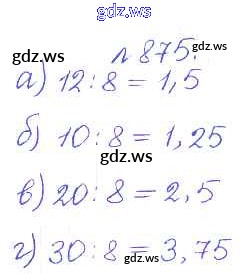 gdz.ws
№ 875. gdz.ws
а) 12 : 8 = 1,5
gdz.ws
б) 10 : 8 = 1,25
gdz.ws
в) 20 : 8 = 2,5
gdz.ws
г) 30 : 8 = 3,75
gdz.ws